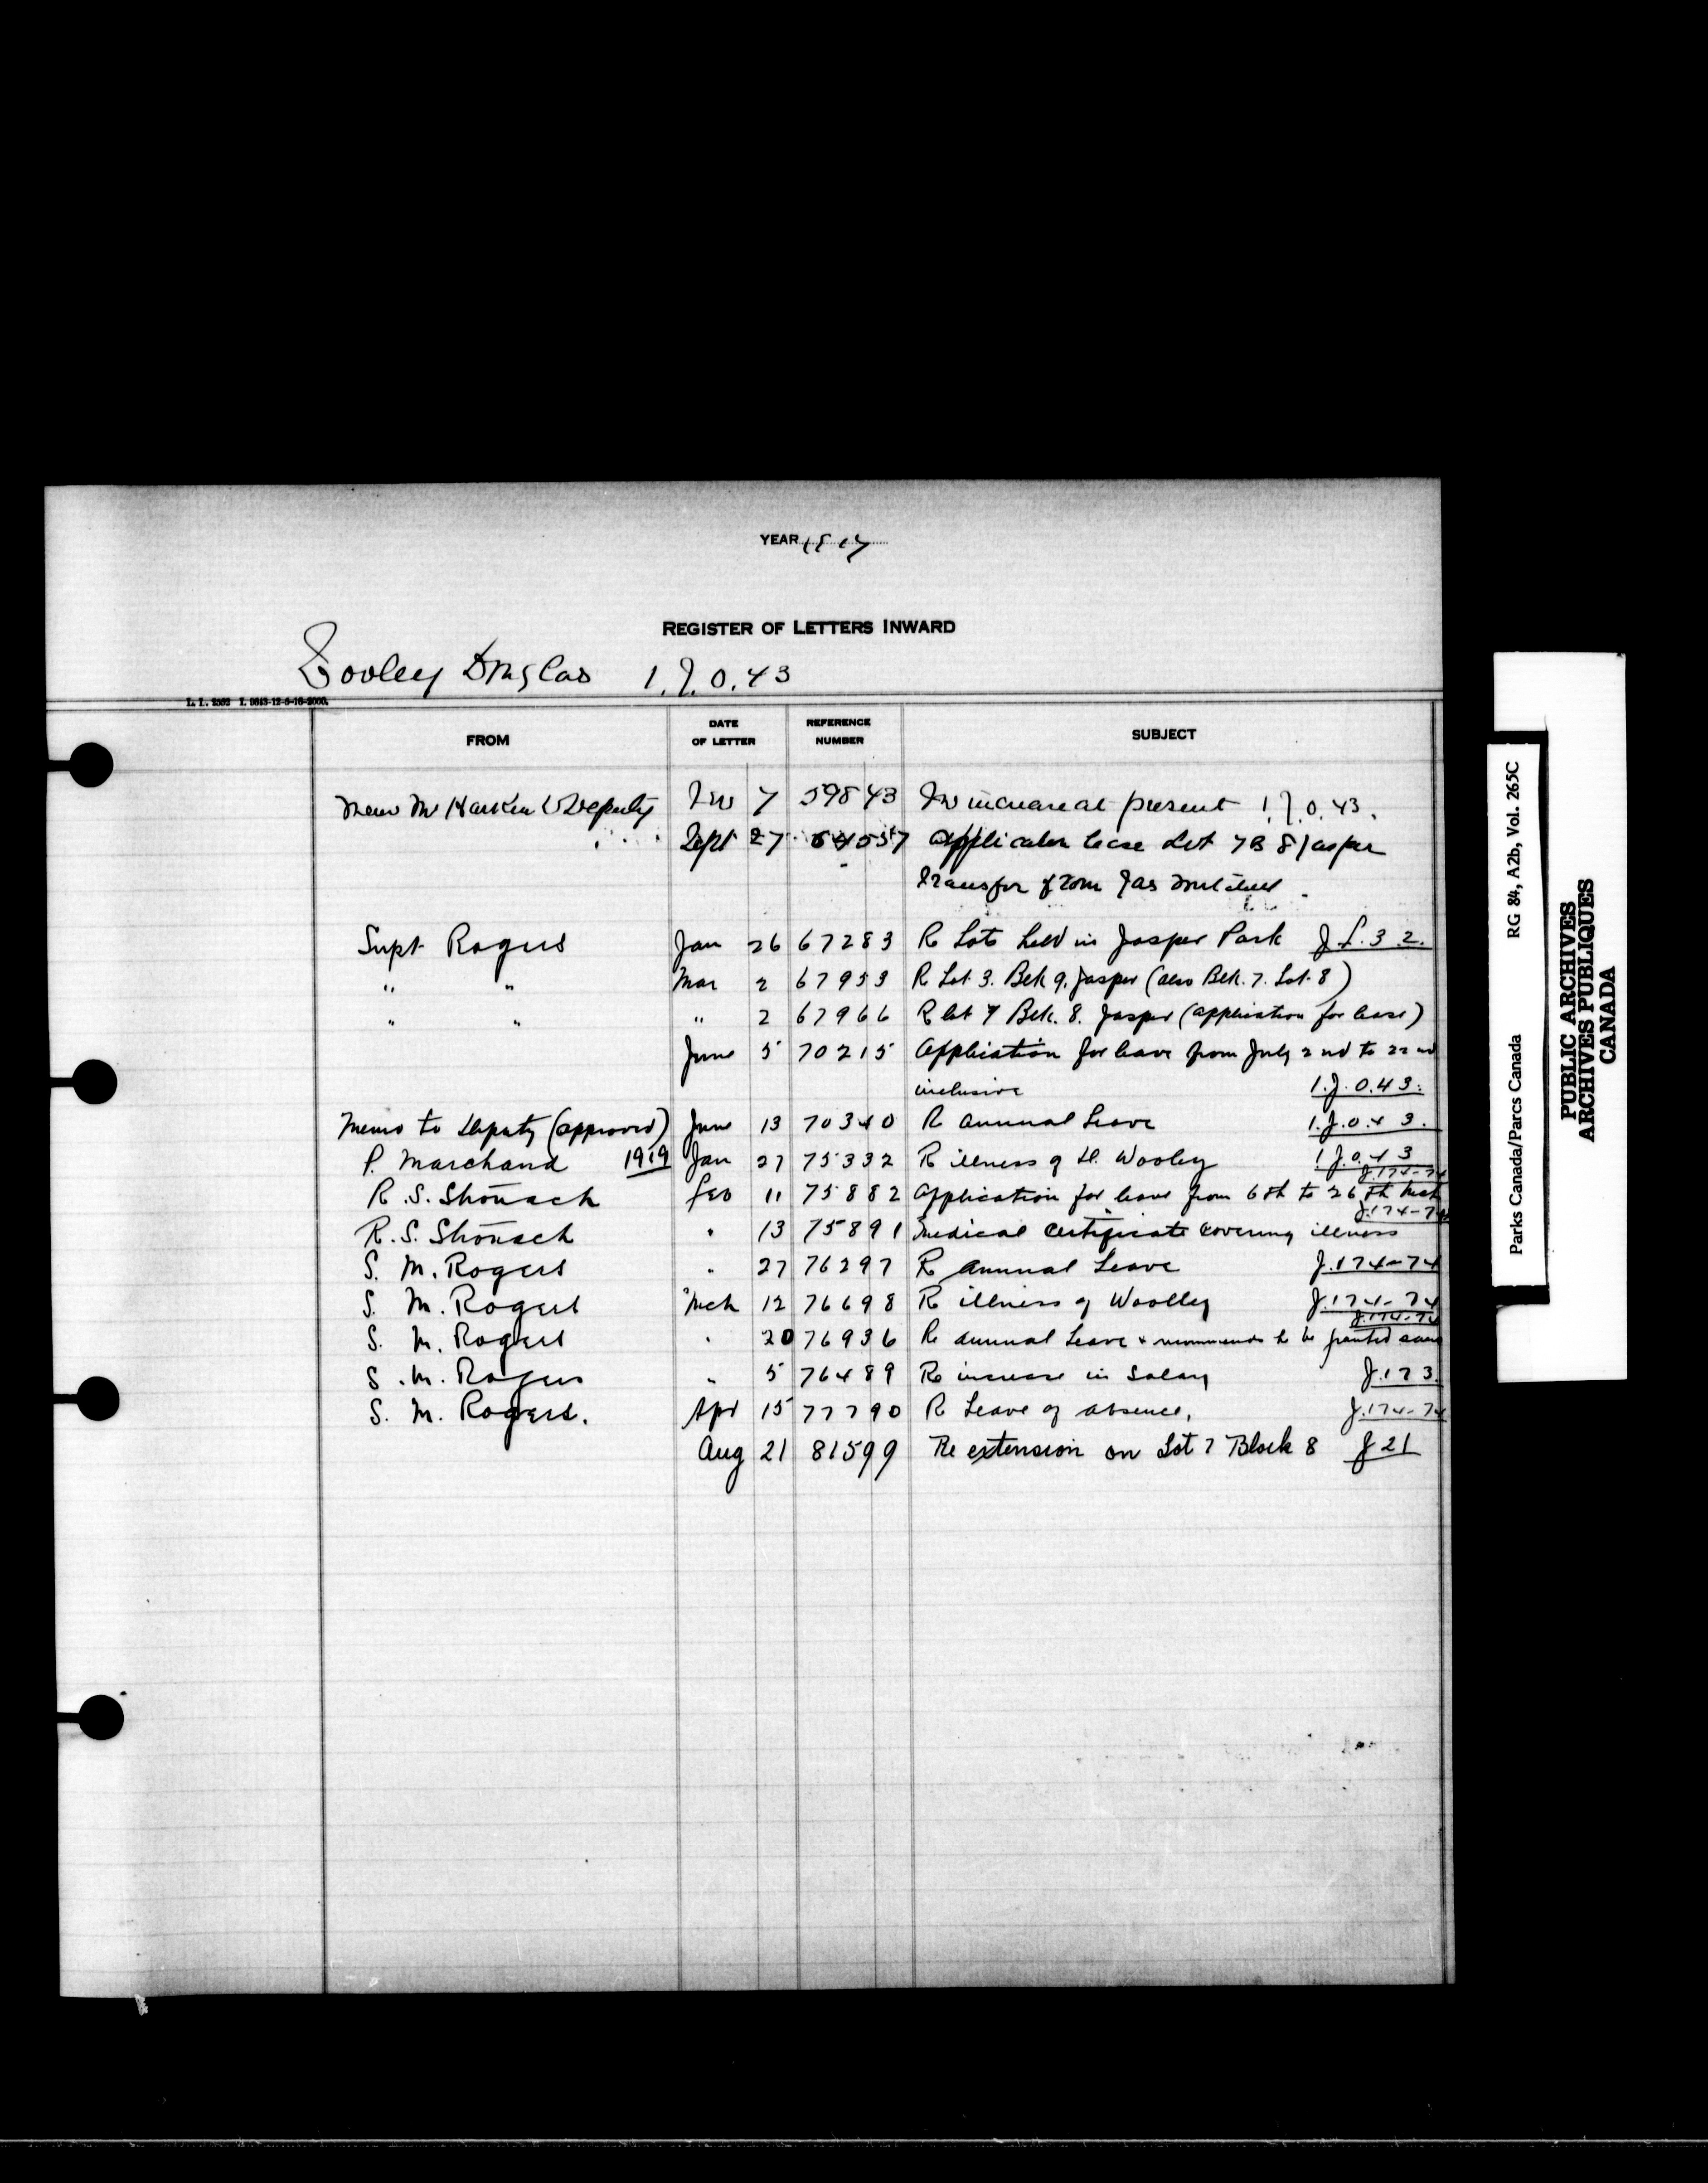 YEAR 1917
REGISTER OF LETTERS INWARD
Wooley Douglas 1.J.0.43
FROM DATE OF LETTER REFERENCE NUMBER SUBJECT
Memo Mr Harkin to Deputy 7 59843 increase at present 1.J.0.43.
Sept 27 64557 Application lease Lot 7 B 8 Jasper
transfer from Jas
Supt Rogers Jan 26 67283 R Lots held in Jasper Park J.L.32.
" " Mar 2 67953 R Lot 3. Blk 9, Jasper (also Blk. 7. Lot 8)
" " " 2 67966 R lot 7 Blk. 8. Jasper (application for lease)
June 5 70215 Application for leave from July 2nd to 22nd
inclusive 1.J.0.43.
Memo to Deputy (approved) June 13 70340 R annual Leave 1.J.0.43.
P. Marchand 1919 Jan 27 75332 R illness of D. Wooley 1J.0.43
J.174-74
R.S. Stronach Feb 11 75882 Application for leave from 6th to 26th Inst
J.174-74
R.S. Stronach " 13 75891 Medical Certificate covering illness
S. M. Rogers " 27 76297 R annual Leave J.174-74
S. M. Rogers Mch 12 76698 R illness of Woolley J.174-74
J.174-74
S. M. Rogers " 20 76936 Re annual Leave & recommends he be granted same
S. M. Rogers " 5 76489 Re increase in Salary J.173.
S. M. Rogers. Apr 15 77790 R Leave of absence, J.174-74
Aug 21 81599 Re extension on Lot 7 Block 8 J 21
Parks Canada/Parcs Canada RG 84, A2b, Vol. 265C
PUBLIC ARCHIVES
ARCHIVES PUBLIQUES
CANADA